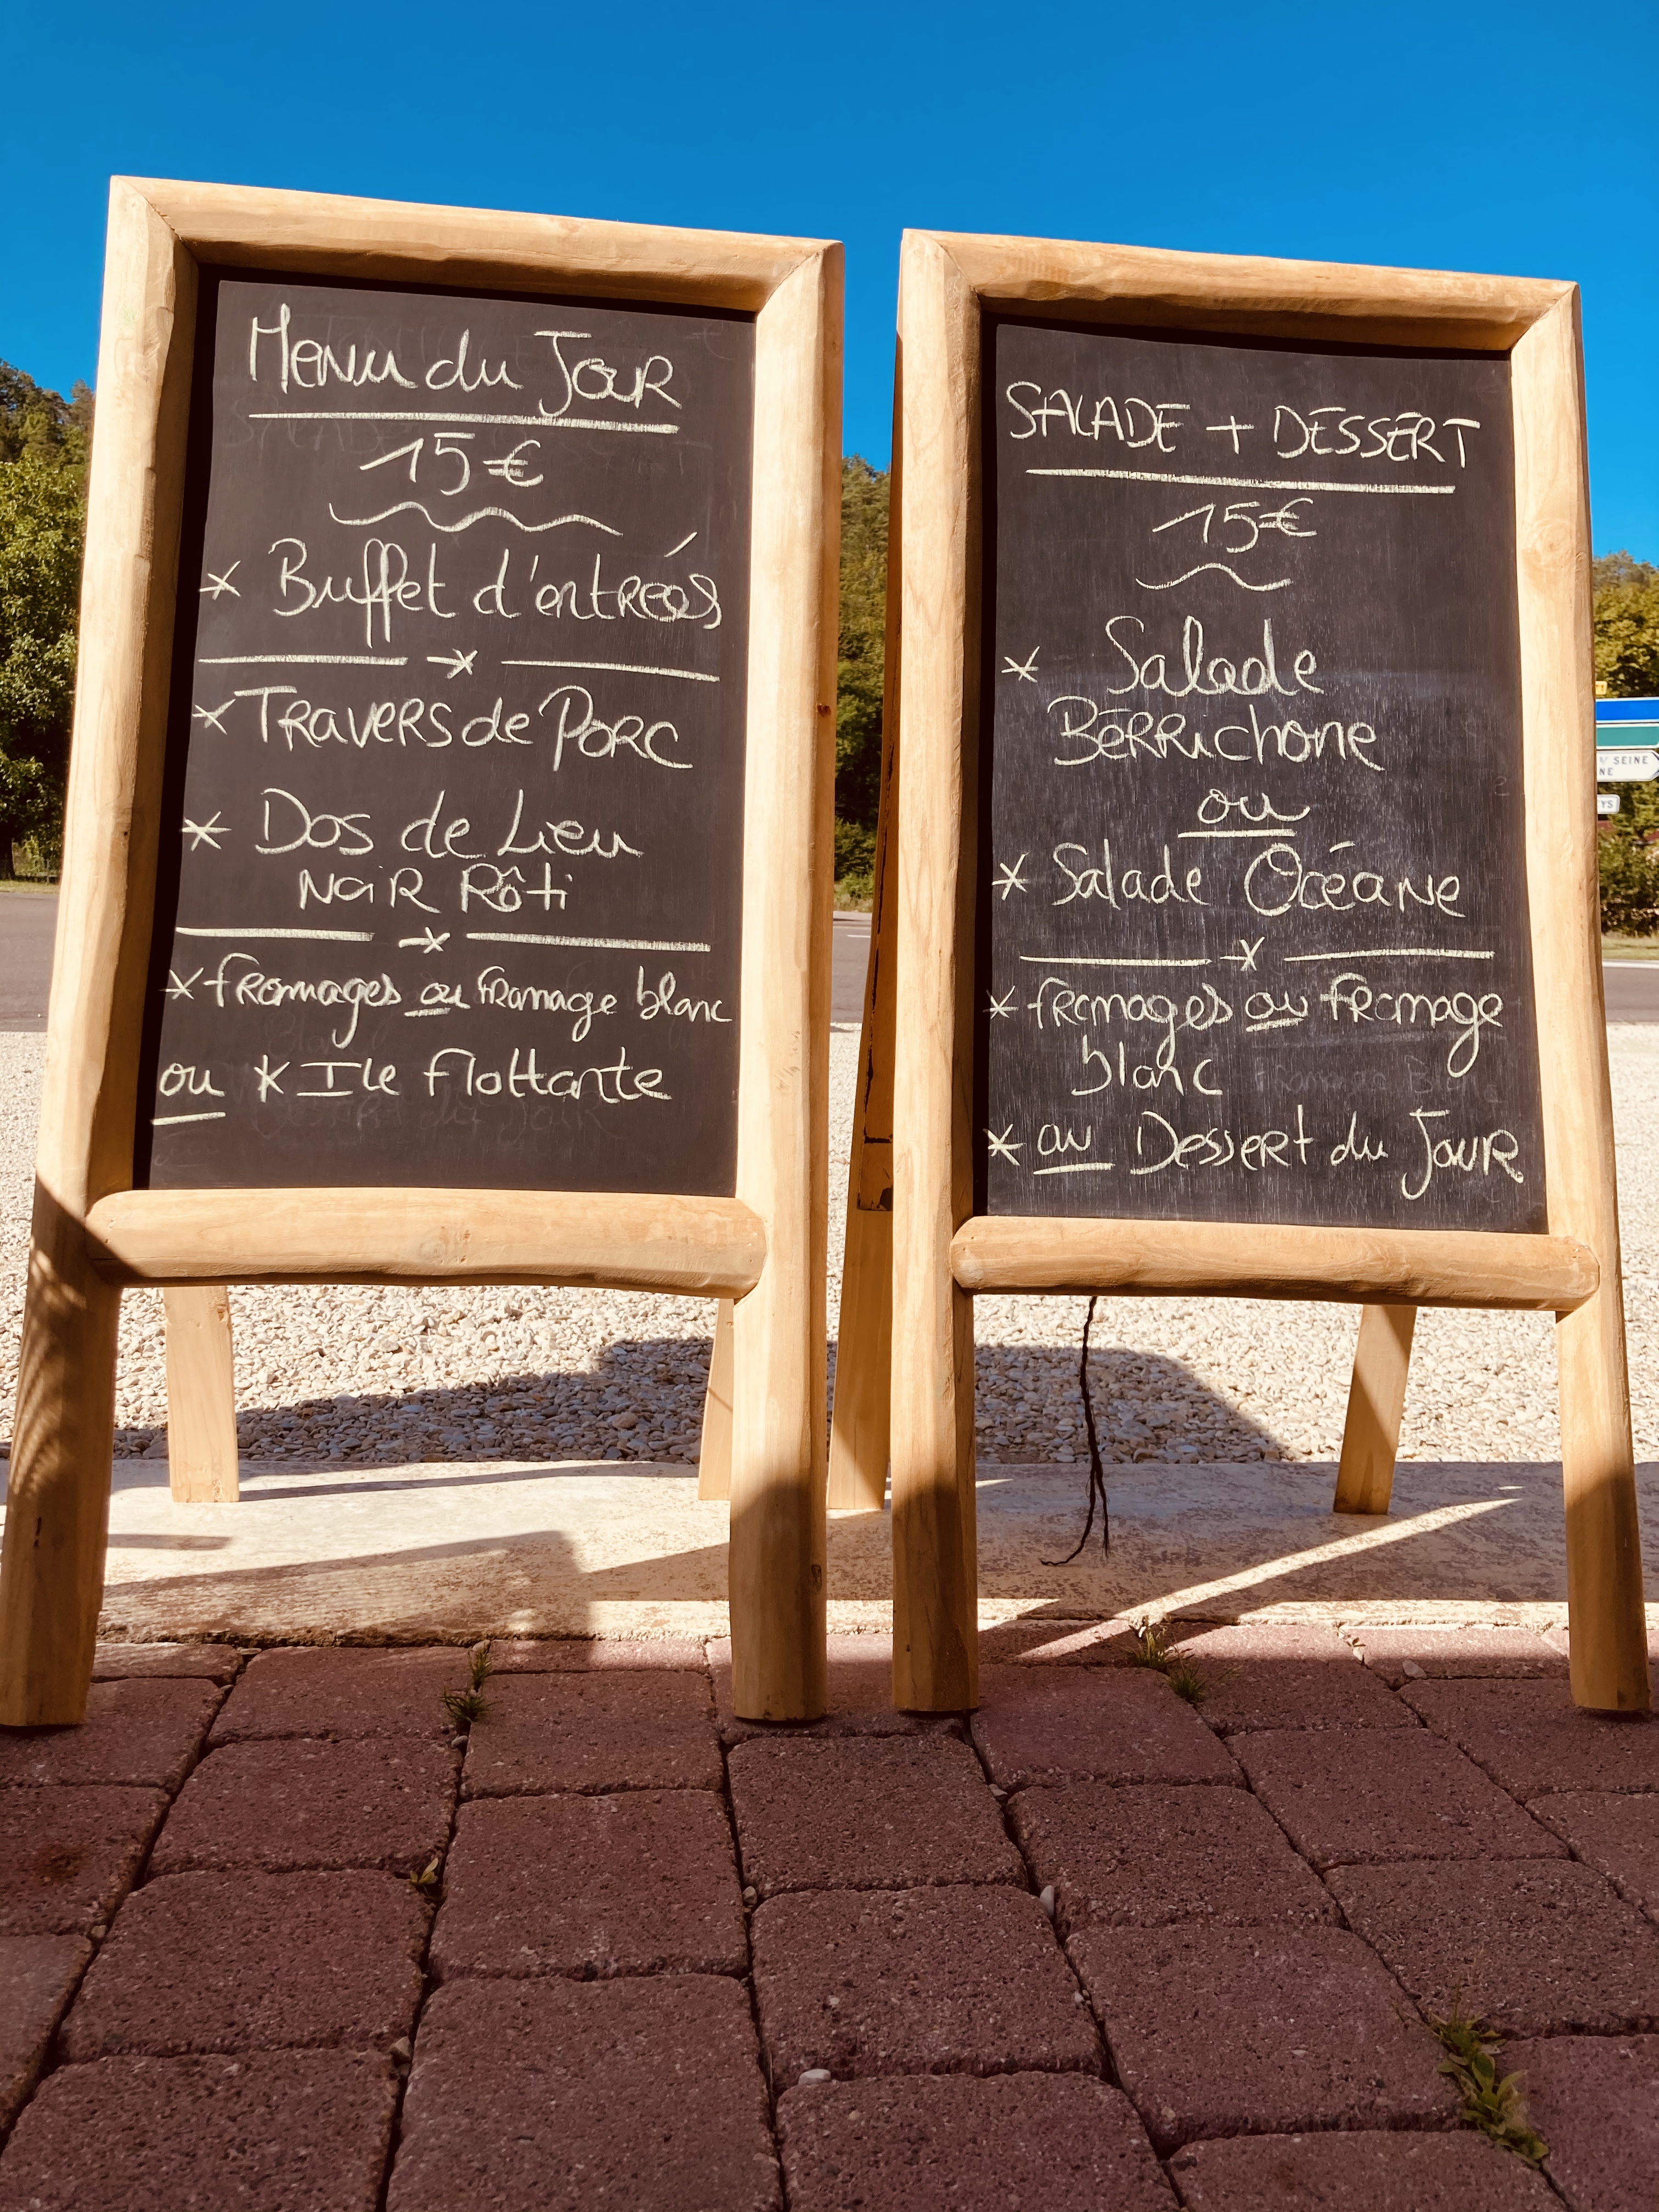 Menu du Jour
15€
* Buffet d'entrées
* Travers de Porc
* Dos de Lieu
Noir Rôti
* fromages ou fromage blanc
ou * Ile flottante
SALADE + DESSERT
15€
* Salade
Bérrichone
ou
* Salade Océane
* fromages ou fromage
blanc
* ou Dessert du Jour
SEINE